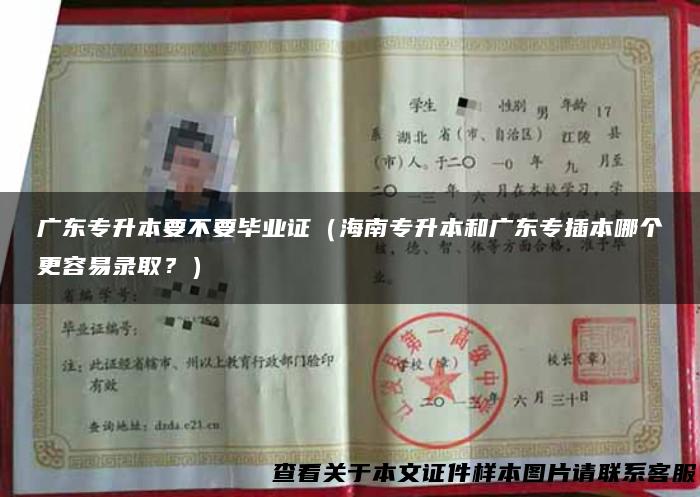 学生 性别 男 年龄 17
系 湖北 省（市、自治区） 江陵 县
（市）人。于二〇一0 年 九 月至
二〇一三 年 六 月在本校学习，学
广东专升本要不要毕业证（海南专升本和广东专插本哪个
更容易录取？）
德、智、体等方面合格，准予毕
业。
省编学号：
毕业证编号：
注：此证经省辖市、州以上教育行政部门验印
有效
查询地址：dzda.e21.cn
学校（章） 校长（章）
江陵县第一高级中学
二〇一三年 六 月 三十日
查看关于本文证件样本图片请联系客服